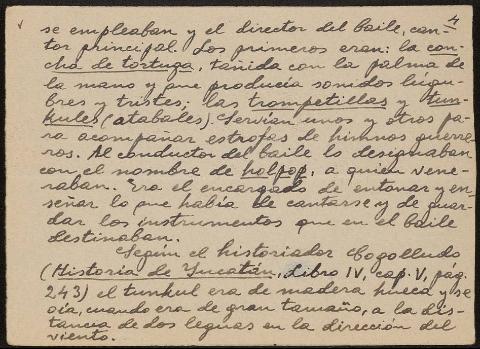 4
se empleaban y el director del baile, can-
tor principal. Los primeros eran: la con-
cha de tortuga, tañida con la palma de
la mano y que producía sonidos lúgu-
bres y tristes; las trompetillas y tun-
kules (atabales). Servían unos y otros pa-
ra acompañar estrofas de himnos guerre-
ros. Al conductor del baile lo designaban
con el nombre de holpop, a quien vene-
raban. "Era el encargado de entonar y en-
señar lo que había de cantarse y de guar-
dar los instrumentos que en el baile
destinaban.
Según el historiador Cogolludo
(Historia de Yucatán, Libro IV, cap. V, pag.
243) el tunkul era de madera hueca y se
oía, cuando era de gran tamaño, a la dis-
tancia de dos leguas en la dirección del
viento.